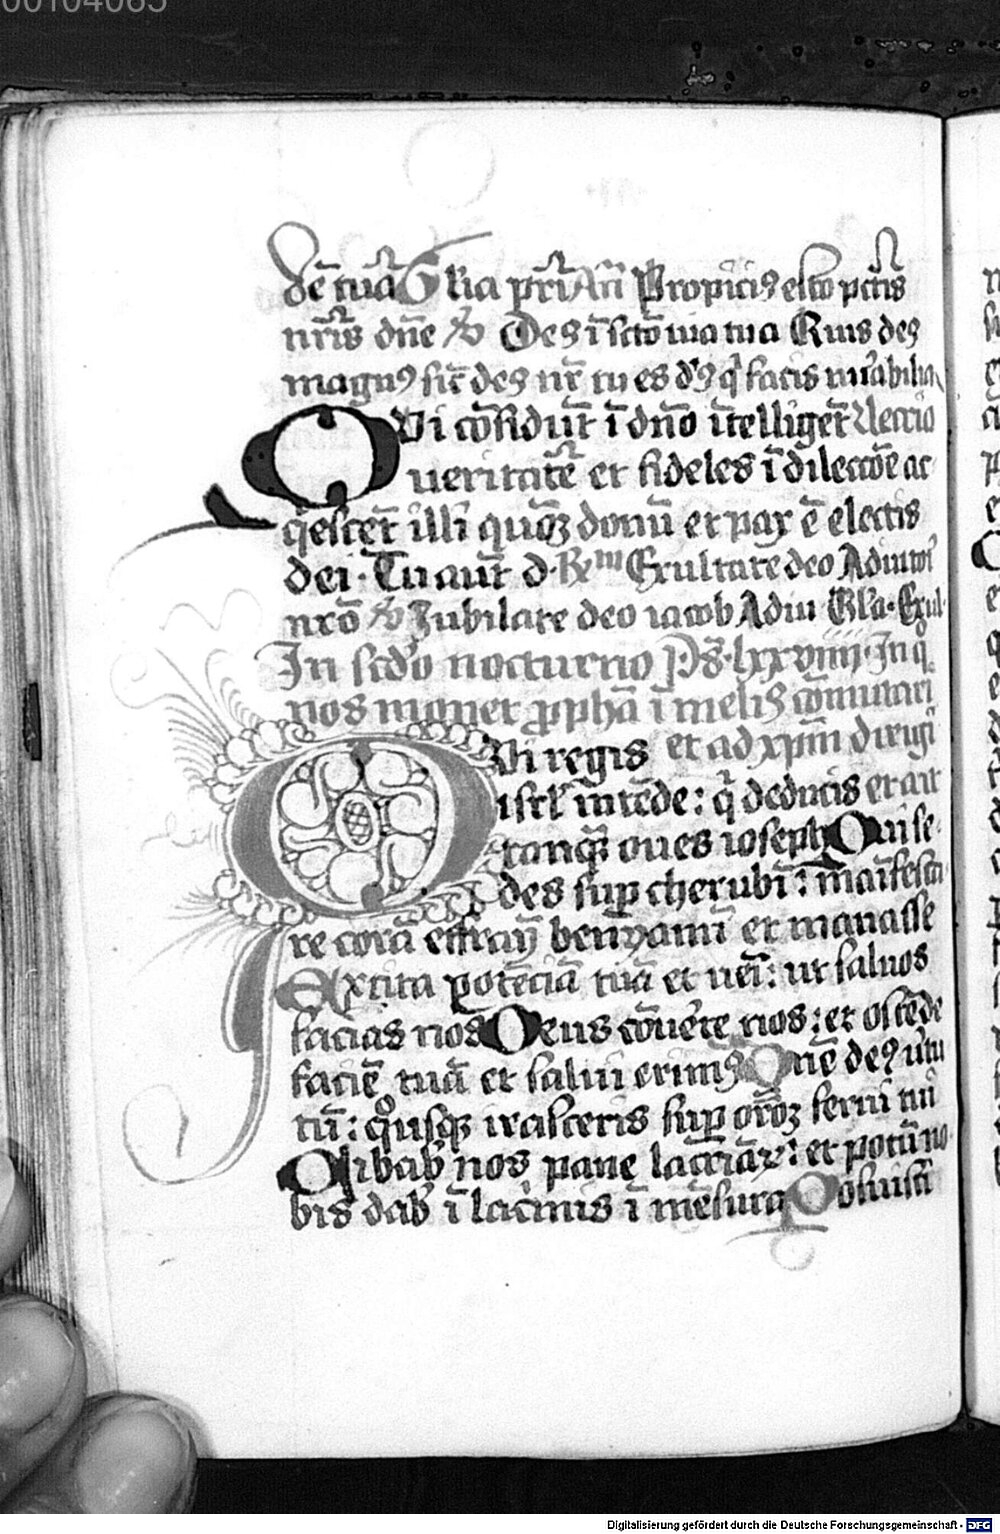 00104065
dē tuā Glīa pr̄i An̄ Propiciꝯ esto pctīs
nr̄is dn̄e ℣ Deꝯ ī sctō uia tua Quis deꝯ
magnꝯ sic̄ deꝯ nr̄ tu es dꝰꝯ q̇ facis mirabilia
Qvi cōfidūt ī dn̄o ītelliget̄ Lectio
ueritatē et fideles ī dilectōe ac
q̇escet̄ illi quō donū et pax ē electis
dei· Tu aut̄ d· ℞m Exultate deo Adiutoꝛi
nr̄o ℣ Jubilate deo iacob Adiu Gl̄a· Exul
In scd̄o nocturno ps̄· lxxviiii· In q̊
nos monet ꝓph̄a ī meliꝯ cōmutari
QVi regis et ad xp̄m dirigi
isrl̄ intēde: q̇ deducis et ait
tanqꝫ oues ioseph Qui se
des suꝑ cherubī: māifesta
re corā effraȳ beniamī et manasse
Excita potēciā tuā et uēi: ut saluos
facias nos Deus cōuerte nos: et ostēde
faciē tuā et salui erimꝯ Dn̄e deꝯ uirtu
tū: q̊usqꝫ irasceris suꝑ or̄oꝫ serui tui
Cibab̄ nos pane lacrīaꝝ: et potū no
bis dab̄ ī lac̄mis ī mēsura Posuisti
Digitalisierung gefördert durch die Deutsche Forschungsgemeinschaft - DFG